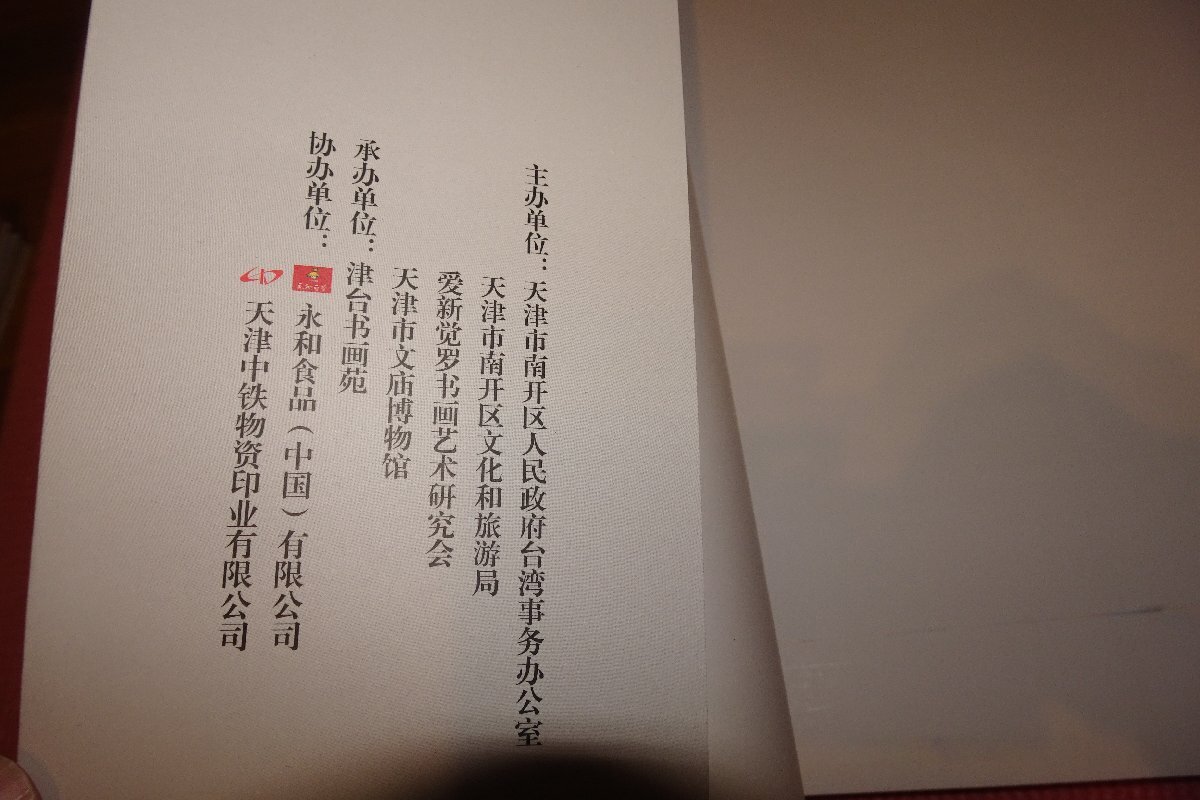 主办单位：天津市南开区人民政府台湾事务办公室
天津市南开区文化和旅游局
爱新觉罗书画艺术研究会
天津市文庙博物馆
承办单位：津台书画苑
协办单位：永和食品（中国）有限公司
天津中铁物资印业有限公司